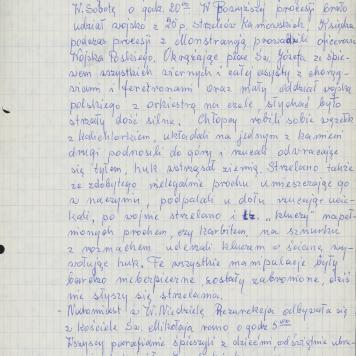 W. Sobotę o godz. 20⁰⁰ W Rezurekcji procesji brało
udział wojsko z 20 p. Strzelców Kaniowskich. Księdza
podczas procesji z Monstrancją prowadzili oficerowie
Wojska Polskiego. Okrążając plac Św. Józefa ze śpie-
wem wszystkich wiernych i całej asysty z chorąg-
wiami i feretronami oraz mały oddział wojska
polskiego z orkiestrą na czele, słychać było
strzały dość silne. Chłopcy robili sobie
z kalichlorkiem, układali na jednym z kamieni
drugi podnosili do góry i rzucali odwracając
się tyłem, huk wstrząsał ziemią. Strzelano także
ze zdobytego nielegalnie prochu umieszczając go
w naczyniu, podpalali w dołu rzucając ucie-
kali, po wojnie strzelano i tz. "kluczy" napeł-
nionych prochem, czy karbitem, na sznurku
z rozmachem uderzali kluczem o ścianę wy-
wołując huk. Te wszystkie manipulacje były
bardzo niebezpieczne zostały zabronione, dziś
nie słyszy się strzelania.
Natomiast w W. Niedzielę Rezurekcja odbywała się
z kościele Św. Mikołaja rano o godz 5⁰⁰
Wszyscy parafianie śpieszyli z dziećmi, odświętnie ubra-